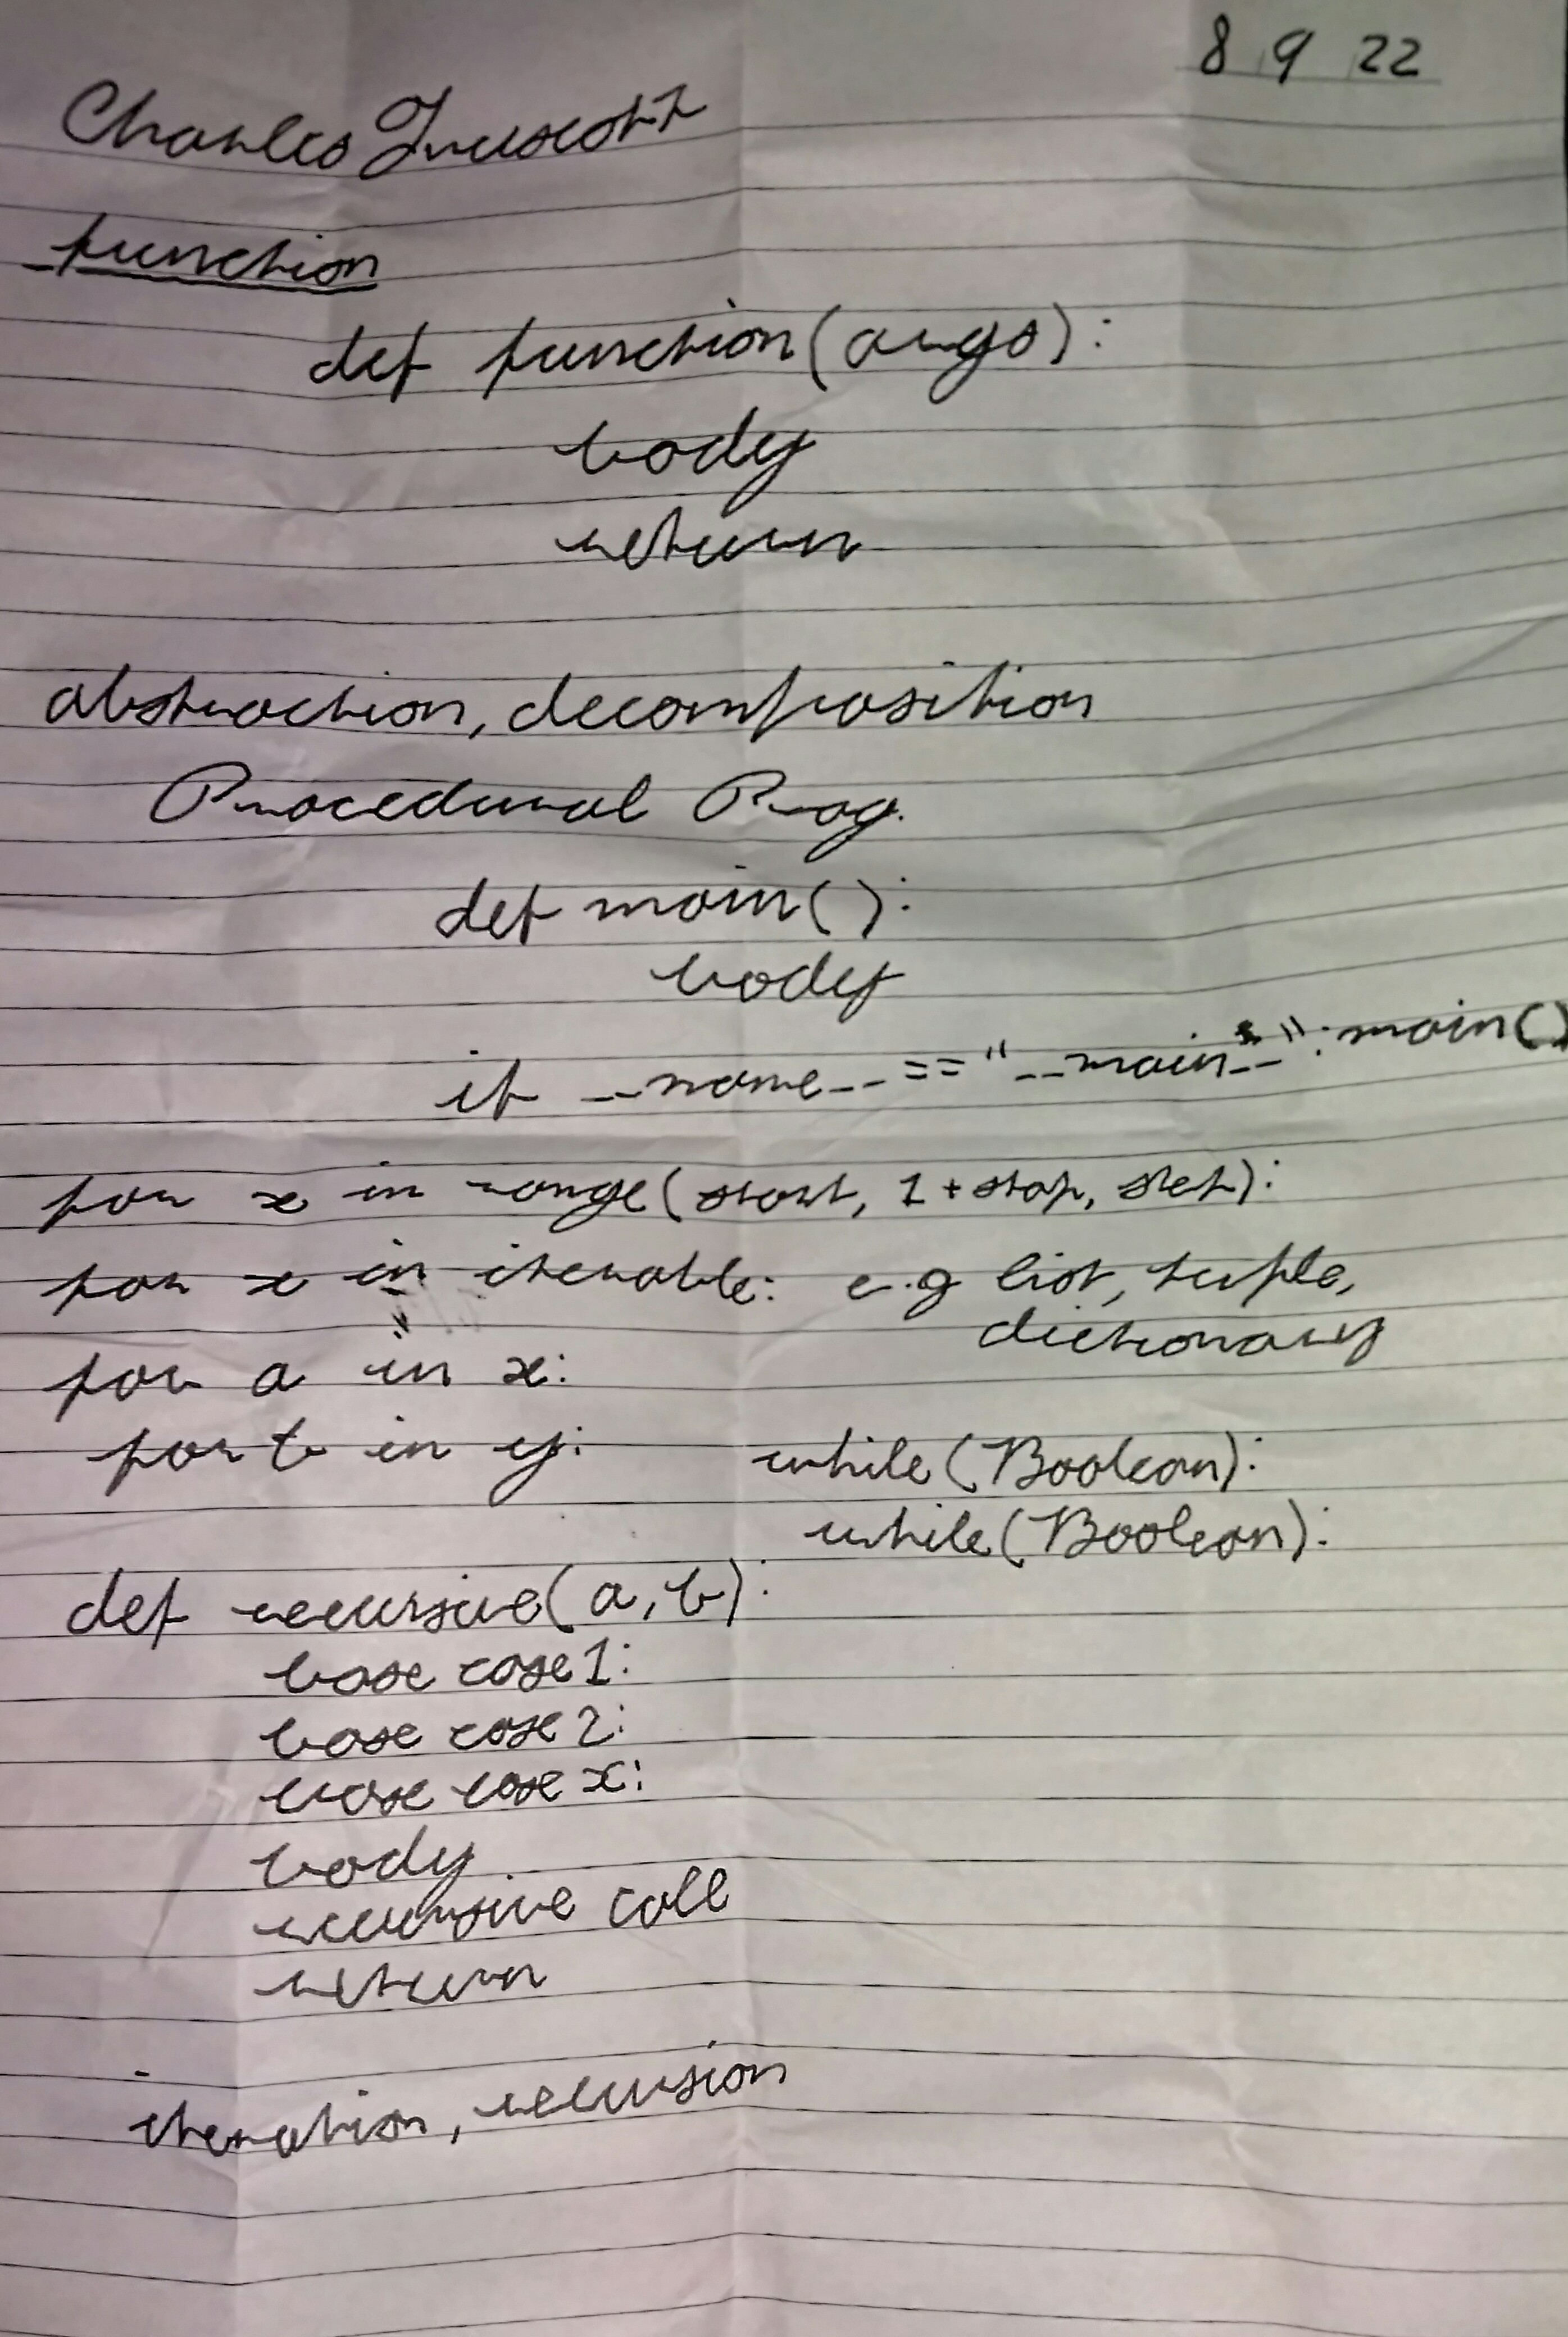 8 9 22
Charles Truscott
function
def function(args):
body
return
abstraction, decomposition
Procedural Prog.
def main():
body
if __name__ == "__main__": main()
for x in range(start, 1 + stop, step):
for x in iterable: e.g list, tuple,
dictionary
for a in x:
for b in y:
while (Boolean):
while (Boolean):
def recursive(a, b):
base case 1:
base case 2:
base case x:
body
recursive call
return
iteration, recursion